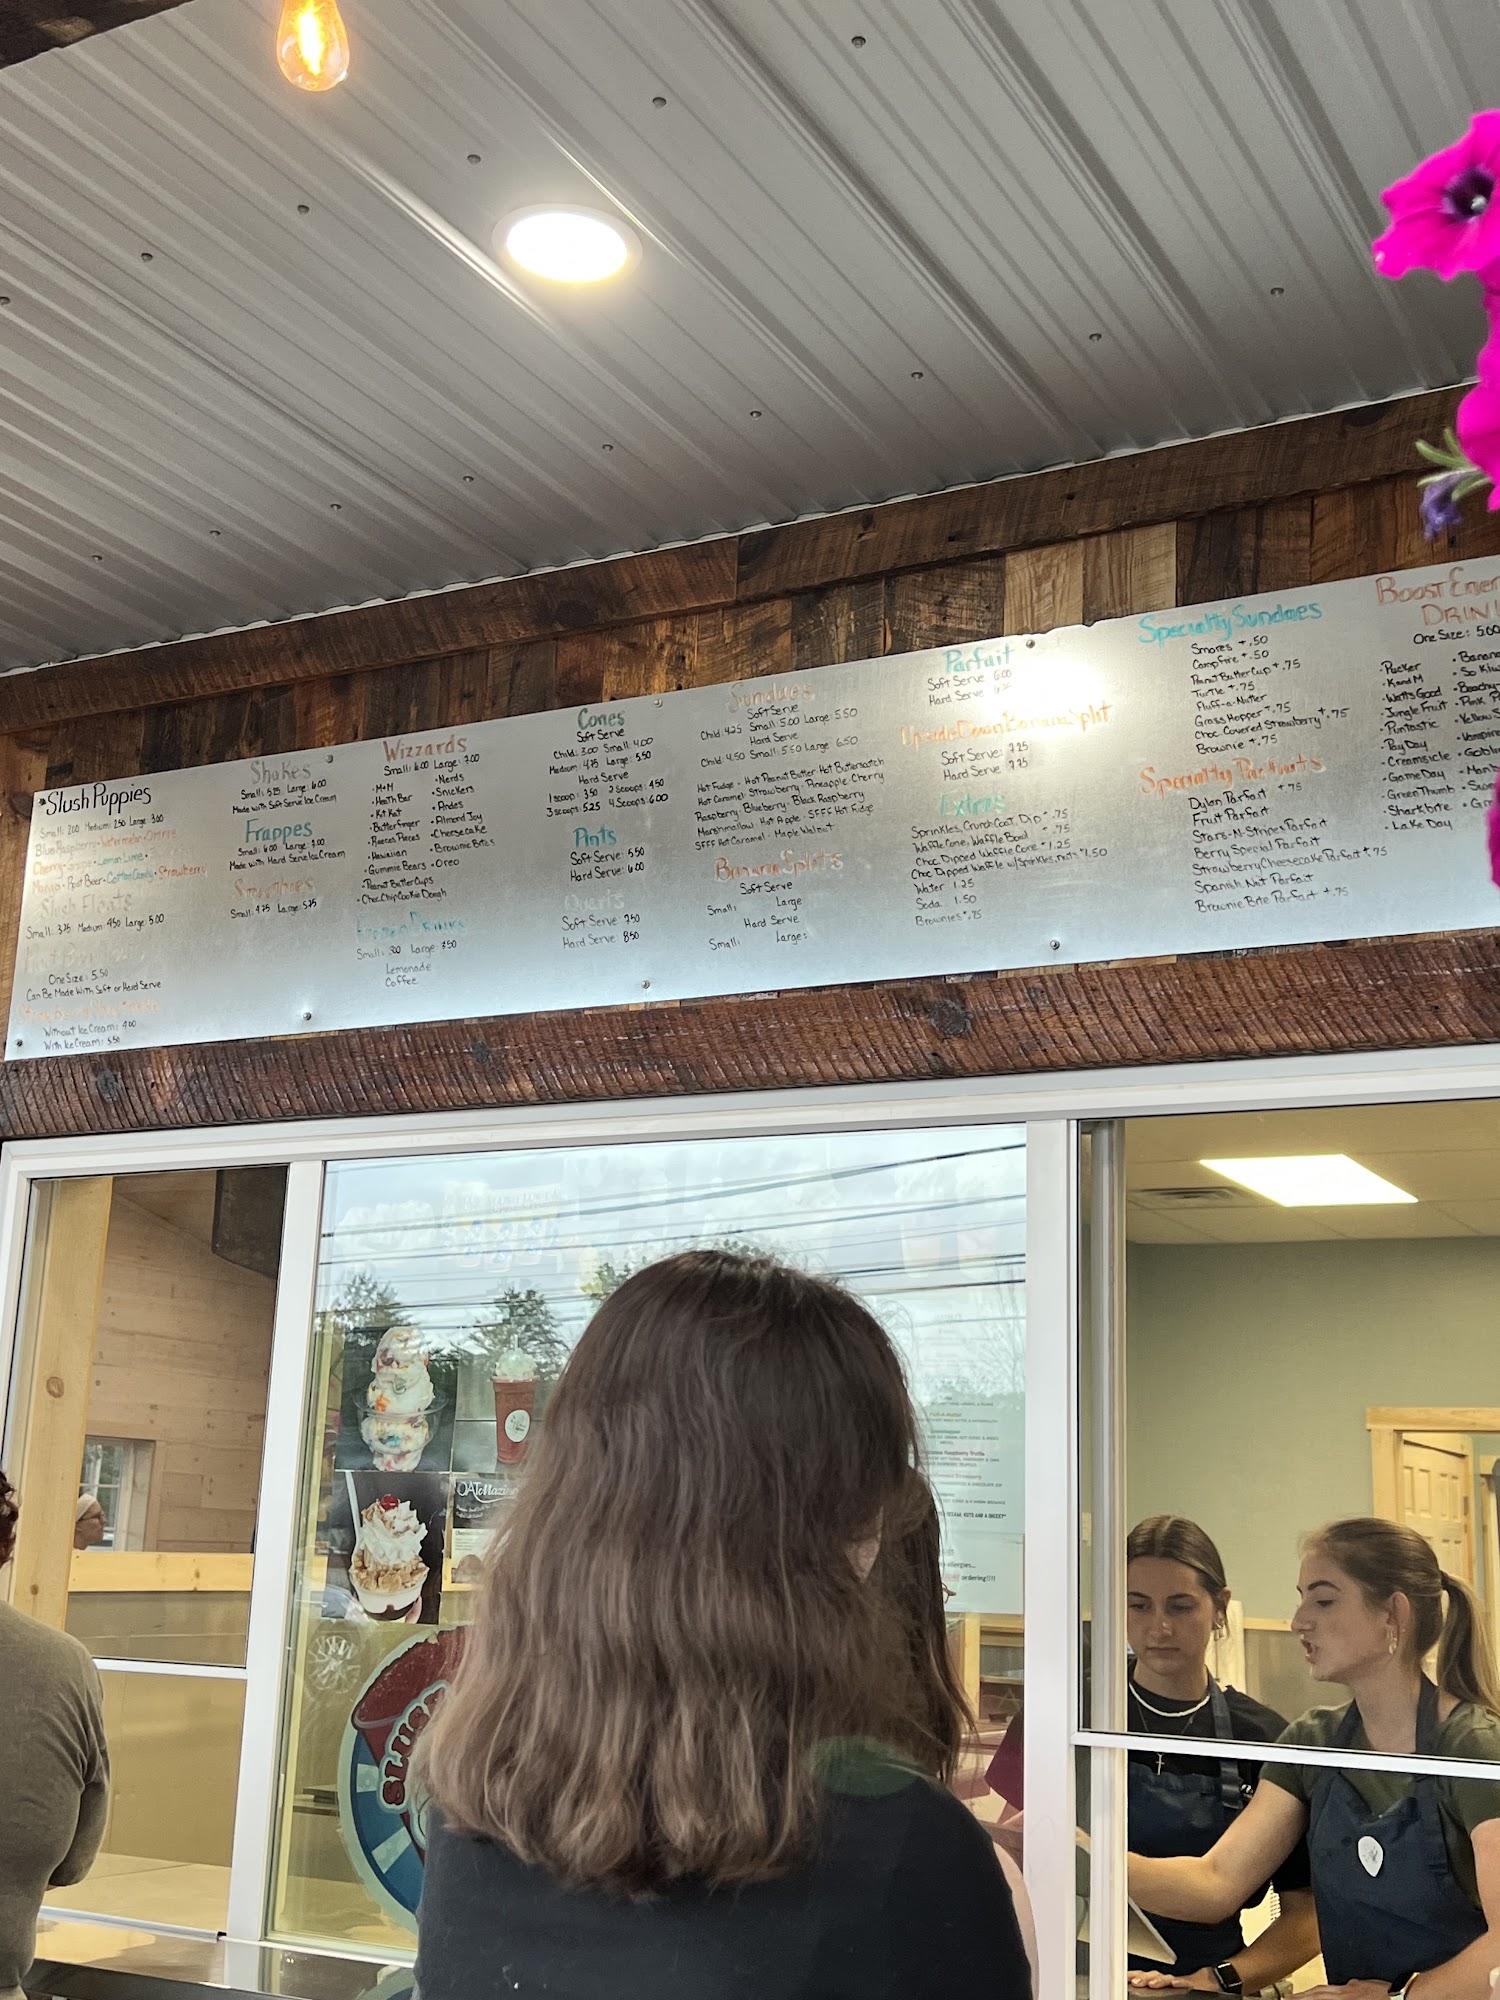 Slush Puppies
Small: 2.00 Medium: 2.50 Large: 3.00
Blue Raspberry • Watermelon •
Cherry • Grape • Lemon Lime •
Mango • Root Beer • Cotton Candy • Strawberry
Slush Floats
Small: 3.75 Medium: 4.50 Large: 5.00
One Size: 5.50
Can Be Made With Soft or Hard Serve
Without Ice Cream: 4.00
With Ice Cream: 5.50
Shakes
Small: 5.25 Large: 6.00
Made with Soft Serve Ice Cream
Frappes
Small: 6.00 Large: 7.00
Made with Hard Serve Ice Cream
Smoothies
Small: 4.75 Large: 5.75
Wizzards
Small: 6.00 Large: 7.00
• M+M
• Heath Bar
• Kit Kat
• Butterfinger
• Reeces Pieces
• Hawaiian
• Gummie Bears
• Peanut Butter Cups
• Choc. Chip Cookie Dough
• Nerds
• Snickers
• Andes
• Almond Joy
• Cheesecake
• Brownie Bites
• Oreo
Frozen Drinks
Large: 3.50
Lemonade
Coffee
Cones
Soft Serve
Child: 3.00 Small: 4.00
Medium: 4.75 Large: 5.50
Hard Serve
1 scoop: 3.50 2 Scoops: 4.50
3 scoops: 5.25 4 Scoops: 6.00
Pints
Soft Serve: 5.50
Hard Serve: 6.00
Quarts
Soft Serve 7.50
Hard Serve 8.50
Sundaes
Soft Serve
Child: 4.25 Small: 5.00 Large: 5.50
Hard Serve
Child: 4.50 Small: 5.50 Large: 6.50
Hot Fudge - Hot Peanut Butter Hot Butterscotch
Hot Caramel - Strawberry - Pineapple - Cherry
Raspberry - Blueberry - Black Raspberry
Marshmallow - Hot Apple - SFFF Hot Fudge
SFFF Hot Caramel - Maple Walnut
Banana Splits
Soft Serve
Small: Large
Hard Serve
Small: Large:
Parfait
Soft Serve 6.00
Hard Serve
Upside Down Banana Split
Soft Serve: 7.25
Hard Serve 7.75
Extras
Sprinkles, Crunch Coat, Dip + .75
Waffle Cone, Waffle Bowl + .75
Choc Dipped Waffle Cone + 1.25
Choc Dipped Waffle w/Sprinkles, nuts + 1.50
Water 1.25
Soda 1.50
Brownies + .75
Specialty Sundaes
Smores + .50
Campfire + .50
Peanut Butter Cup + .75
Turtle + .75
Fluff-a-Nutter
Grass Hopper + .75
Choc Covered Strawberry + .75
Brownie + .75
Specialty Parfaits
Dylan Parfait + .75
Fruit Parfait
Stars-N-Stripes Parfait
Berry Special Parfait
Strawberry Cheesecake Parfait + .75
Spanish Nut Parfait
Brownie Bite Parfait + .75
Boost Ener
DRIN
One Size: 5.00
• Pucker
• Kand M
• Watts Good
• Jungle Fruit
• Puntastic
• Pay Day
• Creamsicle
• Game Day
• Green Thumb
• Shark bite
• Lake Day
• Banana
• So Kiwi
• Beachy
• Pink P
• Yellow S
• Vampire
• Goblin
OATMazin
SLUS
ordering!!!!